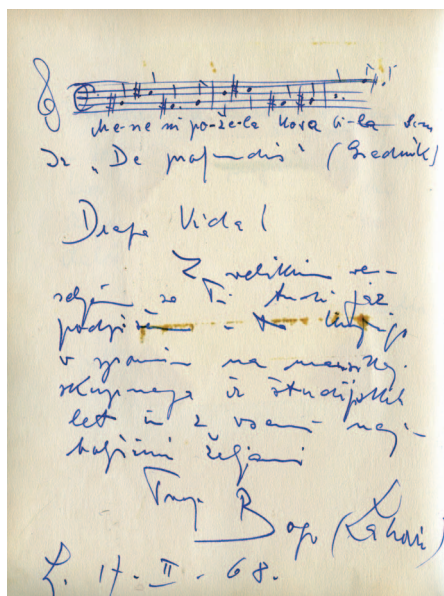 me-ne ni po-že-la kova ci-la sem
Iz „De profundis“ (Gradnik)
Draga Vida!
Z velikim ve-
seljem se Ti tudi jaz
podpišem v to knjigo
v spomin na marsikaj
skupnega iz študijskih
let in z vsemi naj-
boljšimi željami
Tvoj Bogo (Leskovic)
L. 17. II. 68.